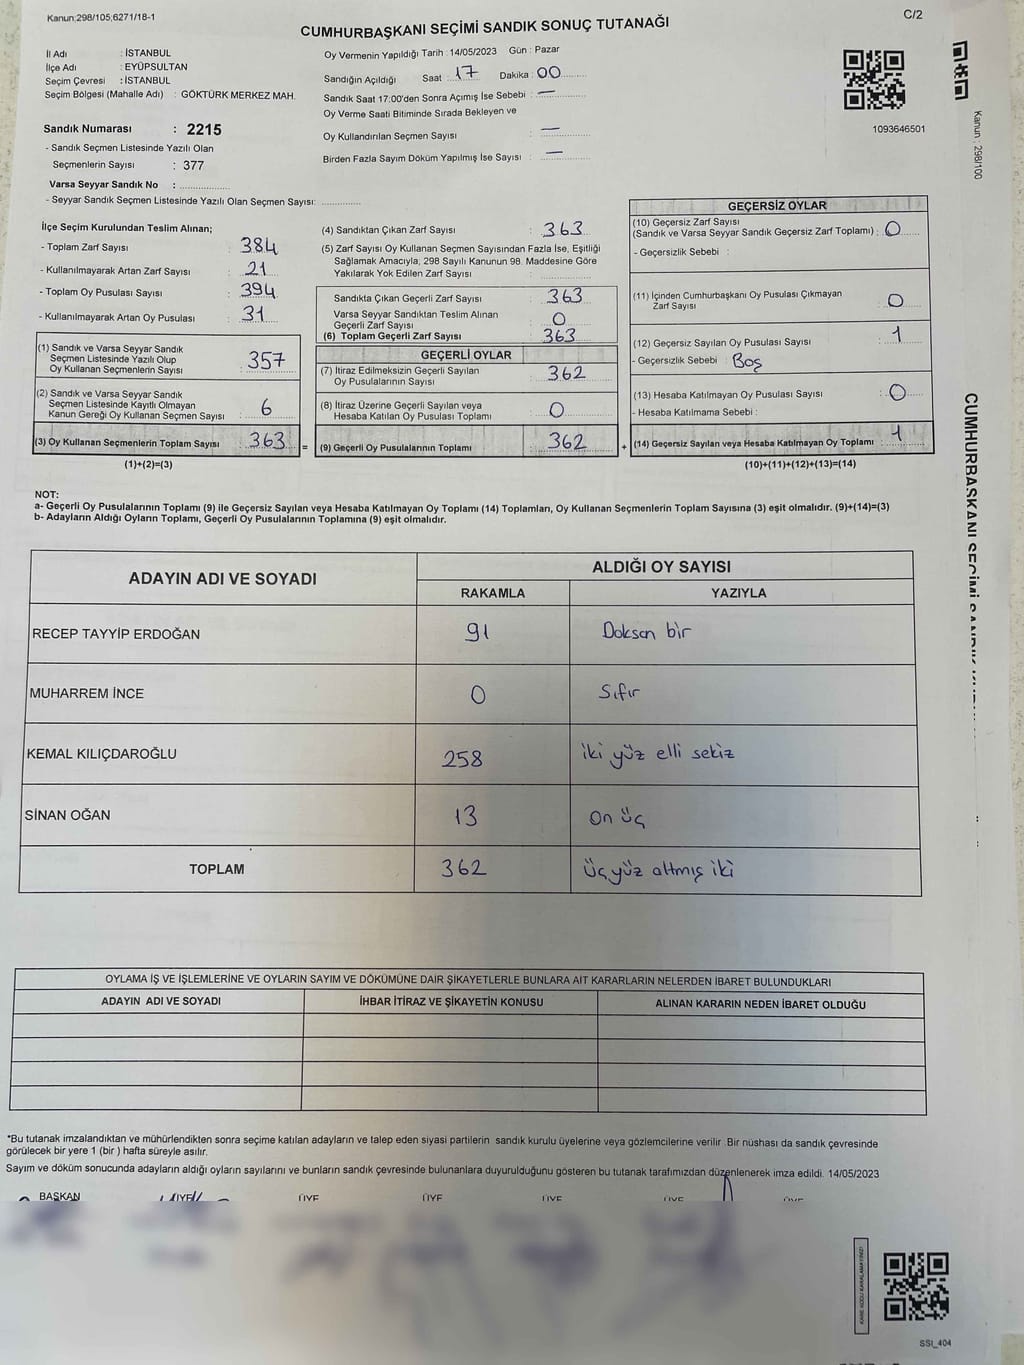 Kanun:298/105;6271/18-1
C/2
CUMHURBAŞKANI SEÇİMİ SANDIK SONUÇ TUTANAĞI
İl Adı : İSTANBUL
İlçe Adı : EYÜPSULTAN
Seçim Çevresi : İSTANBUL
Seçim Bölgesi (Mahalle Adı) : GÖKTÜRK MERKEZ MAH.
Oy Vermenin Yapıldığı Tarih : 14/05/2023 Gün : Pazar
Sandığın Açıldığı Saat : 17 Dakika : 00
Sandık Saat 17:00'den Sonra Açımış İse Sebebi : —
Oy Verme Saati Bitiminde Sırada Bekleyen ve
Oy Kullandırılan Seçmen Sayısı : —
Birden Fazla Sayım Döküm Yapılmış İse Sayısı : —
1093646501
Kanun : 298/100
Sandık Numarası : 2215
- Sandık Seçmen Listesinde Yazılı Olan
Seçmenlerin Sayısı : 377
Varsa Seyyar Sandık No :
- Seyyar Sandık Seçmen Listesinde Yazılı Olan Seçmen Sayısı:
İlçe Seçim Kurulundan Teslim Alınan;
- Toplam Zarf Sayısı : 384
- Kullanılmayarak Artan Zarf Sayısı : 21
- Toplam Oy Pusulası Sayısı : 394
- Kullanılmayarak Artan Oy Pusulası : 31
(1) Sandık ve Varsa Seyyar Sandık
Seçmen Listesinde Yazılı Olup
Oy Kullanan Seçmenlerin Sayısı : 357
(2) Sandık ve Varsa Seyyar Sandık
Seçmen Listesinde Kayıtlı Olmayan
Kanun Gereği Oy Kullanan Seçmen Sayısı : 6
(3) Oy Kullanan Seçmenlerin Toplam Sayısı : 363 =
(1)+(2)=(3)
(4) Sandıktan Çıkan Zarf Sayısı : 363
(5) Zarf Sayısı Oy Kullanan Seçmen Sayısından Fazla İse, Eşitliği
Sağlamak Amacıyla, 298 Sayılı Kanunun 98. Maddesine Göre
Yakılarak Yok Edilen Zarf Sayısı :
Sandıkta Çıkan Geçerli Zarf Sayısı : 363
Varsa Seyyar Sandıktan Teslim Alınan
Geçerli Zarf Sayısı : 0
(6) Toplam Geçerli Zarf Sayısı : 363
GEÇERLİ OYLAR
(7) İtiraz Edilmeksizin Geçerli Sayılan
Oy Pusulalarının Sayısı : 362
(8) İtiraz Üzerine Geçerli Sayılan veya
Hesaba Katılan Oy Pusulası Toplamı : 0
(9) Geçerli Oy Pusulalarının Toplamı : 362 +
GEÇERSİZ OYLAR
(10) Geçersiz Zarf Sayısı
(Sandık ve Varsa Seyyar Sandık Geçersiz Zarf Toplamı) : 0
- Geçersizlik Sebebi :
(11) İçinden Cumhurbaşkanı Oy Pusulası Çıkmayan
Zarf Sayısı : 0
(12) Geçersiz Sayılan Oy Pusulası Sayısı : 1
- Geçersizlik Sebebi : Boş
(13) Hesaba Katılmayan Oy Pusulası Sayısı : 0
- Hesaba Katılmama Sebebi :
(14) Geçersiz Sayılan veya Hesaba Katılmayan Oy Toplamı : 1
(10)+(11)+(12)+(13)=(14)
NOT:
a- Geçerli Oy Pusulalarının Toplamı (9) ile Geçersiz Sayılan veya Hesaba Katılmayan Oy Toplamı (14) Toplamları, Oy Kullanan Seçmenlerin Toplam Sayısına (3) eşit olmalıdır. (9)+(14)=(3)
b- Adayların Aldığı Oyların Toplamı, Geçerli Oy Pusulalarının Toplamına (9) eşit olmalıdır.
ADAYIN ADI VE SOYADI
ALDIĞI OY SAYISI
RAKAMLA YAZIYLA
RECEP TAYYİP ERDOĞAN 91 Doksan bir
MUHARREM İNCE 0 Sıfır
KEMAL KILIÇDAROĞLU 258 iki yüz elli sekiz
SİNAN OĞAN 13 On üç
TOPLAM 362 Üçyüz altmış iki
OYLAMA İŞ VE İŞLEMLERİNE VE OYLARIN SAYIM VE DÖKÜMÜNE DAİR ŞİKAYETLERLE BUNLARA AİT KARARLARIN NELERDEN İBARET BULUNDUKLARI
ADAYIN ADI VE SOYADI İHBAR İTİRAZ VE ŞİKAYETİN KONUSU ALINAN KARARIN NEDEN İBARET OLDUĞU
*Bu tutanak imzalandıktan ve mühürlendikten sonra seçime katılan adayların ve talep eden siyasi partilerin sandık kurulu üyelerine veya gözlemcilerine verilir .Bir nüshası da sandık çevresinde
görülecek bir yere 1 (bir ) hafta süreyle asılır.
Sayım ve döküm sonucunda adayların aldığı oyların sayılarını ve bunların sandık çevresinde bulunanlara duyurulduğunu gösteren bu tutanak tarafımızdan düzenlenerek imza edildi. 14/05/2023
BAŞKAN ÜYE ÜYE ÜYE ÜYE ÜYE ÜYE
CUMHURBAŞKANI SEÇİMİ
SSİ_404